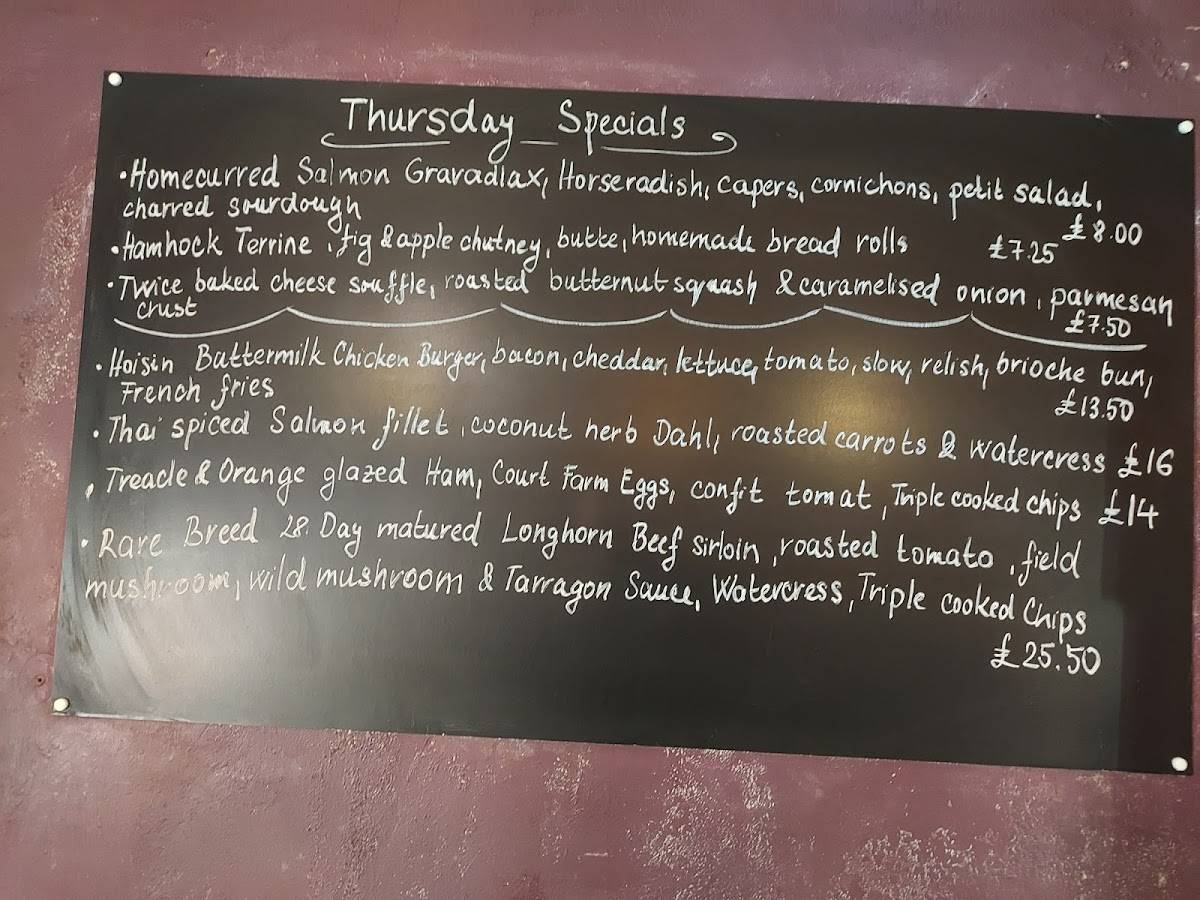 Thursday Specials
• Homecurred Salmon Gravadlax, Horseradish, capers, cornichons, petit salad,
charred sourdough £8.00
• Hamhock Terrine, fig & apple chutney, butte, homemade bread rolls £7.25
• Twice baked cheese souffle, roasted butternut squash & caramelised onion, parmesan
crust £7.50
• Hoisin Buttermilk Chicken Burger, bacon, cheddar, lettuce, tomato, slow, relish, brioche bun,
French fries £13.50
• Thai spiced Salmon fillet, coconut herb Dahl, roasted carrots & watercress £16
• Treacle & Orange glazed Ham, Court Farm Eggs, confit tomat, Triple cooked chips £14
• Rare Breed 28. Day matured Longhorn Beef sirloin, roasted tomato, field
mushroom, wild mushroom & Tarragon Sauce, Watercress, Triple cooked Chips
£25.50